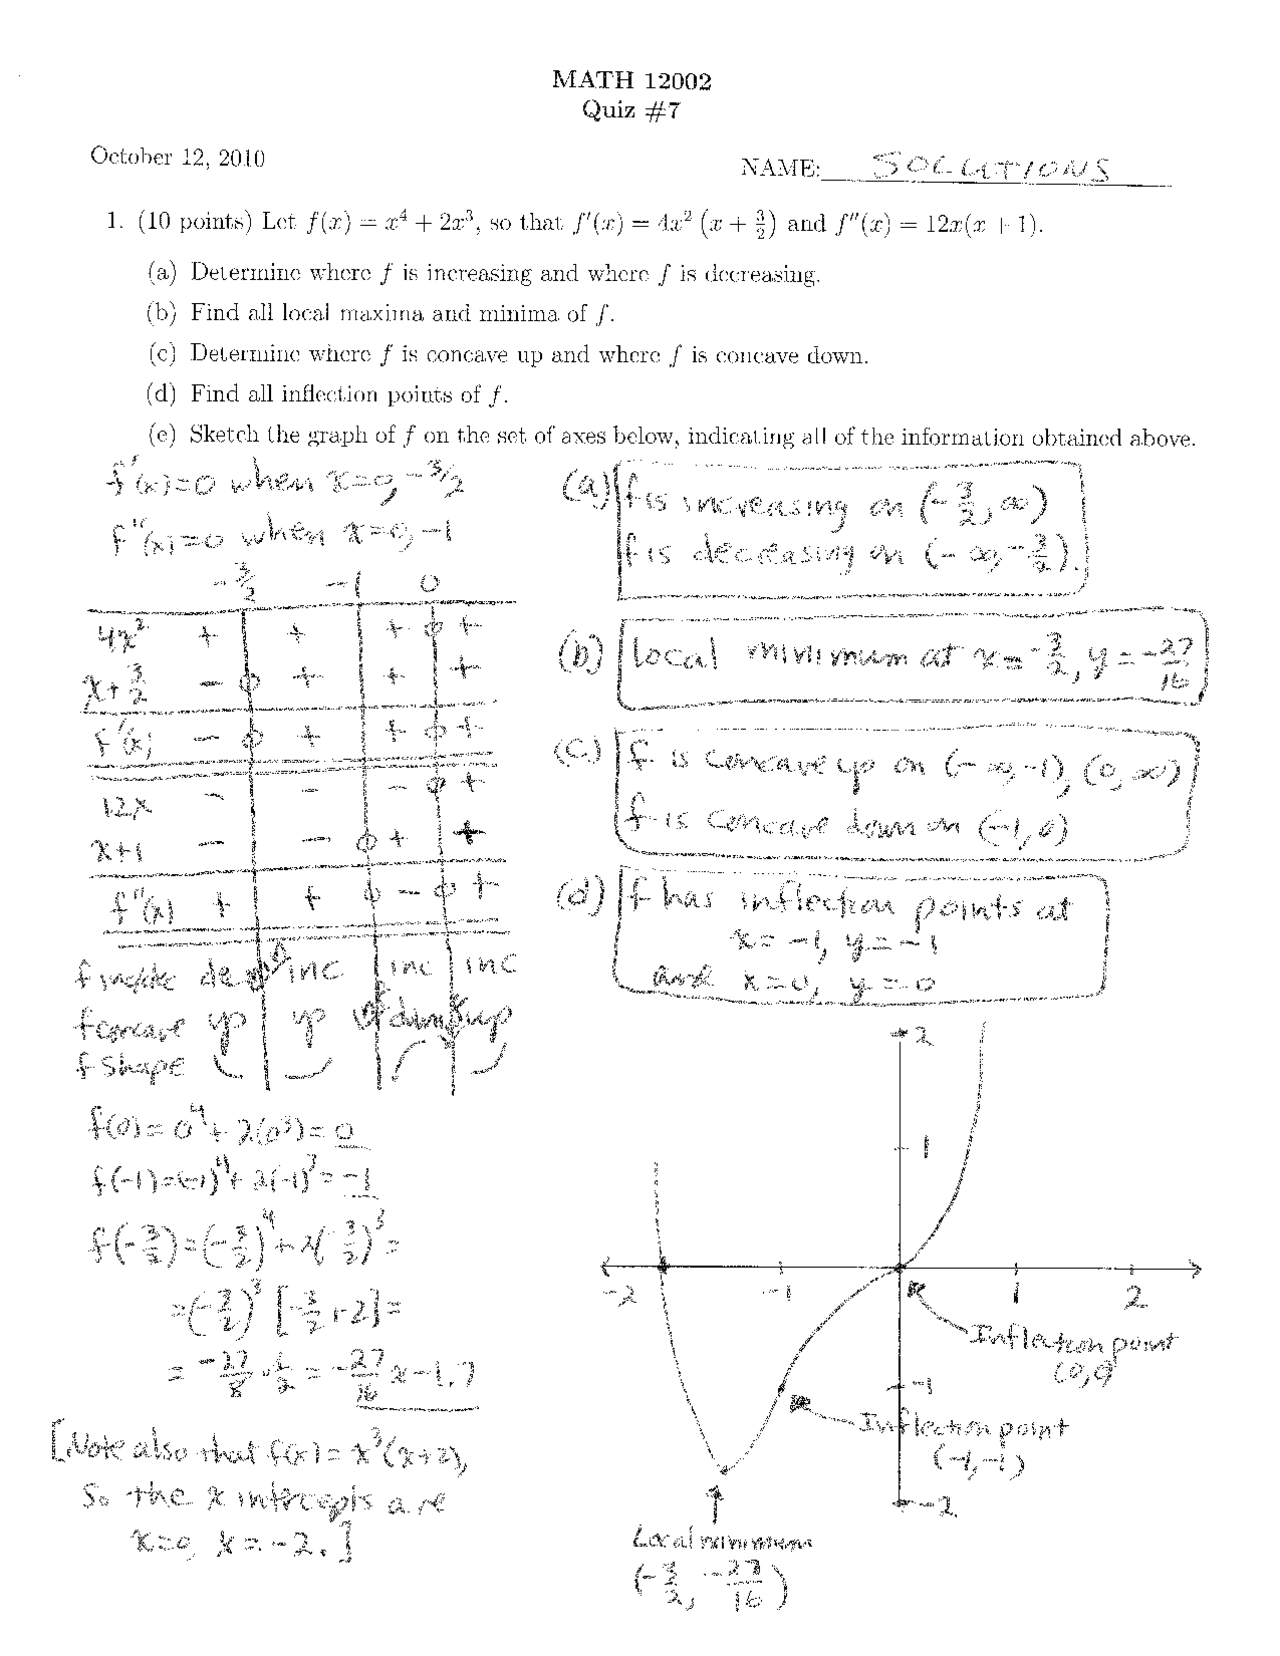 MATH 12002
Quiz #7
October 12, 2010
NAME: SOLUTIONS
1. (10 points) Let f(x) = x⁴ + 2x³, so that f′(x) = 4x² (x + 3/2) and f″(x) = 12x(x + 1).
(a) Determine where f is increasing and where f is decreasing.
(b) Find all local maxima and minima of f.
(c) Determine where f is concave up and where f is concave down.
(d) Find all inflection points of f.
(e) Sketch the graph of f on the set of axes below, indicating all of the information obtained above.
f′(x)=0 when x=0, -3/2
f″(x)=0 when x=0, -1
-3/2 -1 0
4x² + + + 0 +
x+3/2 - 0 + + +
f′(x) - 0 + + 0 +
12x - - - 0 +
x+1 - - 0 + +
f″(x) + + 0 - 0 +
f inc/dec dec inc inc inc
f concave up up down up
f shape
f(0) = 0⁴ + 2(0³) = 0
f(-1) = (-1)⁴ + 2(-1)³ = -1
f(-3/2) = (-3/2)⁴ + 2(-3/2)³ =
= (-3/2)³ [-3/2 + 2] =
= -27/8 · 1/2 = -27/16 ≈ -1.7
[Note also that f(x) = x³(x+2),
So the x intercepts are
x=0, x=-2.]
(a) f is increasing on (-3/2, ∞)
f is decreasing on (-∞, -3/2).
(b) local minimum at x = -3/2, y = -27/16
(c) f is concave up on (-∞, -1), (0, ∞)
f is concave down on (-1, 0)
(d) f has inflection points at
x = -1, y = -1
and x = 0, y = 0
2
1
-2 -1 1 2
Inflection point
(0,0)
-1
Inflection point
(-1,-1)
-2
Local minimum
(-3/2, -27/16)